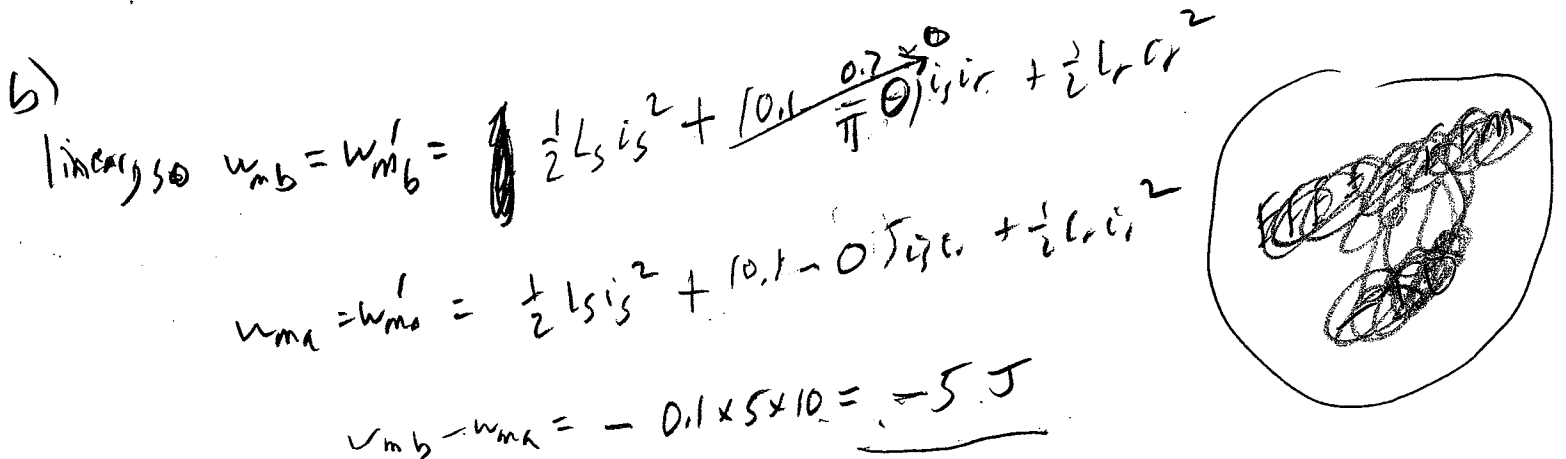 b)
linear, so W_mb = W'_mb = ½ L_s i_s² + (0.1 - 0.2/π θ) i_s i_r + ½ L_r i_r²
W_ma = W'_ma = ½ L_s i_s² + (0.1 - 0) i_s i_r + ½ L_r i_r²
W_mb - W_ma = - 0.1 x 5 x 10 = -5 J